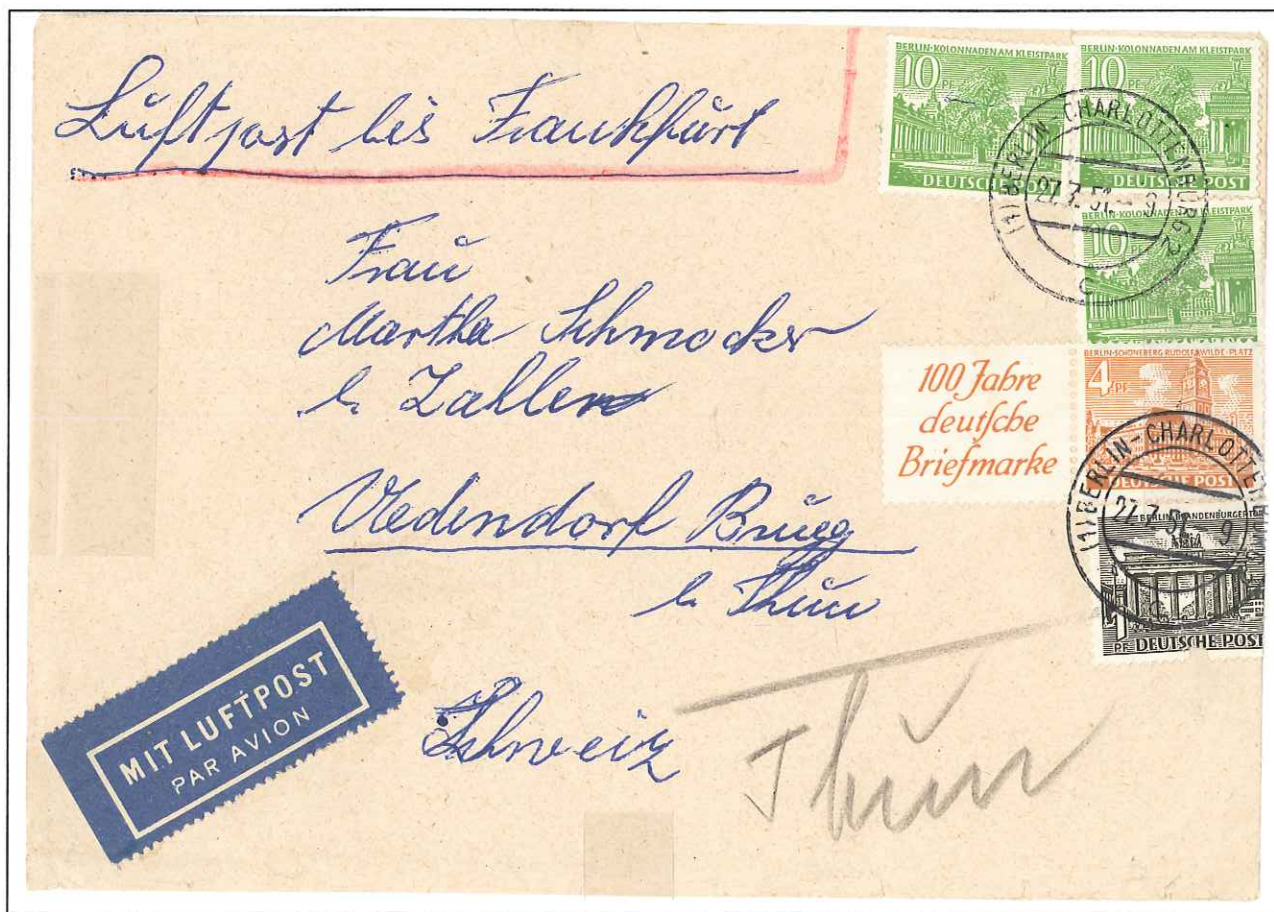 Luftpost bis Frankfurt
BERLIN-KOLONNADEN AM KLEISTPARK
10 PF
DEUTSCHE POST
BERLIN-KOLONNADEN AM KLEISTPARK
10 PF
DEUTSCHE POST
(1) BERLIN-CHARLOTTENBURG 2
27.7.51.-9
c
BERLIN-KOLONNADEN AM KLEISTPARK
10 PF
Frau
Martha Schmocker
b. Zaller
Uedendorf Brugg
b. Thun
Schweiz
100 Jahre
deutsche
Briefmarke
BERLIN-SCHÖNEBERG RUDOLF-WILDE-PLATZ
4 PF
DEUTSCHE POST
(1) BERLIN-CHARLOTTENBURG
27.7.51 9
BERLIN-BRANDENBURGER TOR
1 PF DEUTSCHE POST
MIT LUFTPOST
PAR AVION
Thun